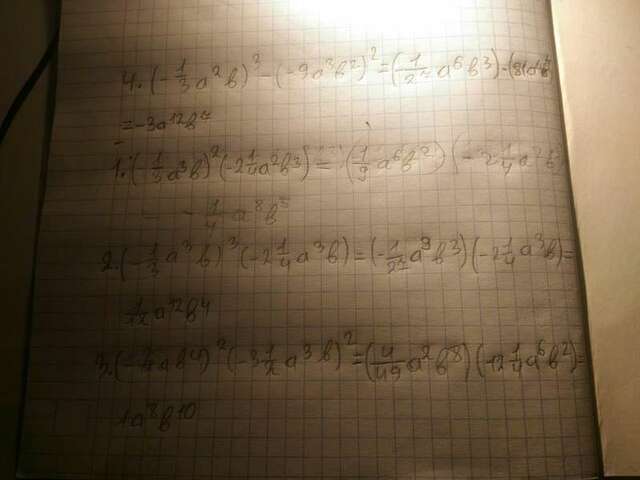 4. (-1/3 a²b)³ - (-9a³b²)² = (1/27 a⁶b³) · (81a
= -3a¹²b⁷
1. (-1/3 a³b)² (-2 1/4 a²b³) = (1/9 a⁶b²) (-2 1/4 a²b
- 1/4 a⁸b⁵
2. (-1/3 a³b)³ (-2 1/4 a³b) = (-1/27 a⁹b³) (-2 1/4 a³b) =
1/12 a¹²b⁴
3. (-2/7 ab⁴)² (-3 1/2 a³b)² = (4/49 a²b⁸) (-12 1/4 a⁶b²) =
1a⁸b¹⁰